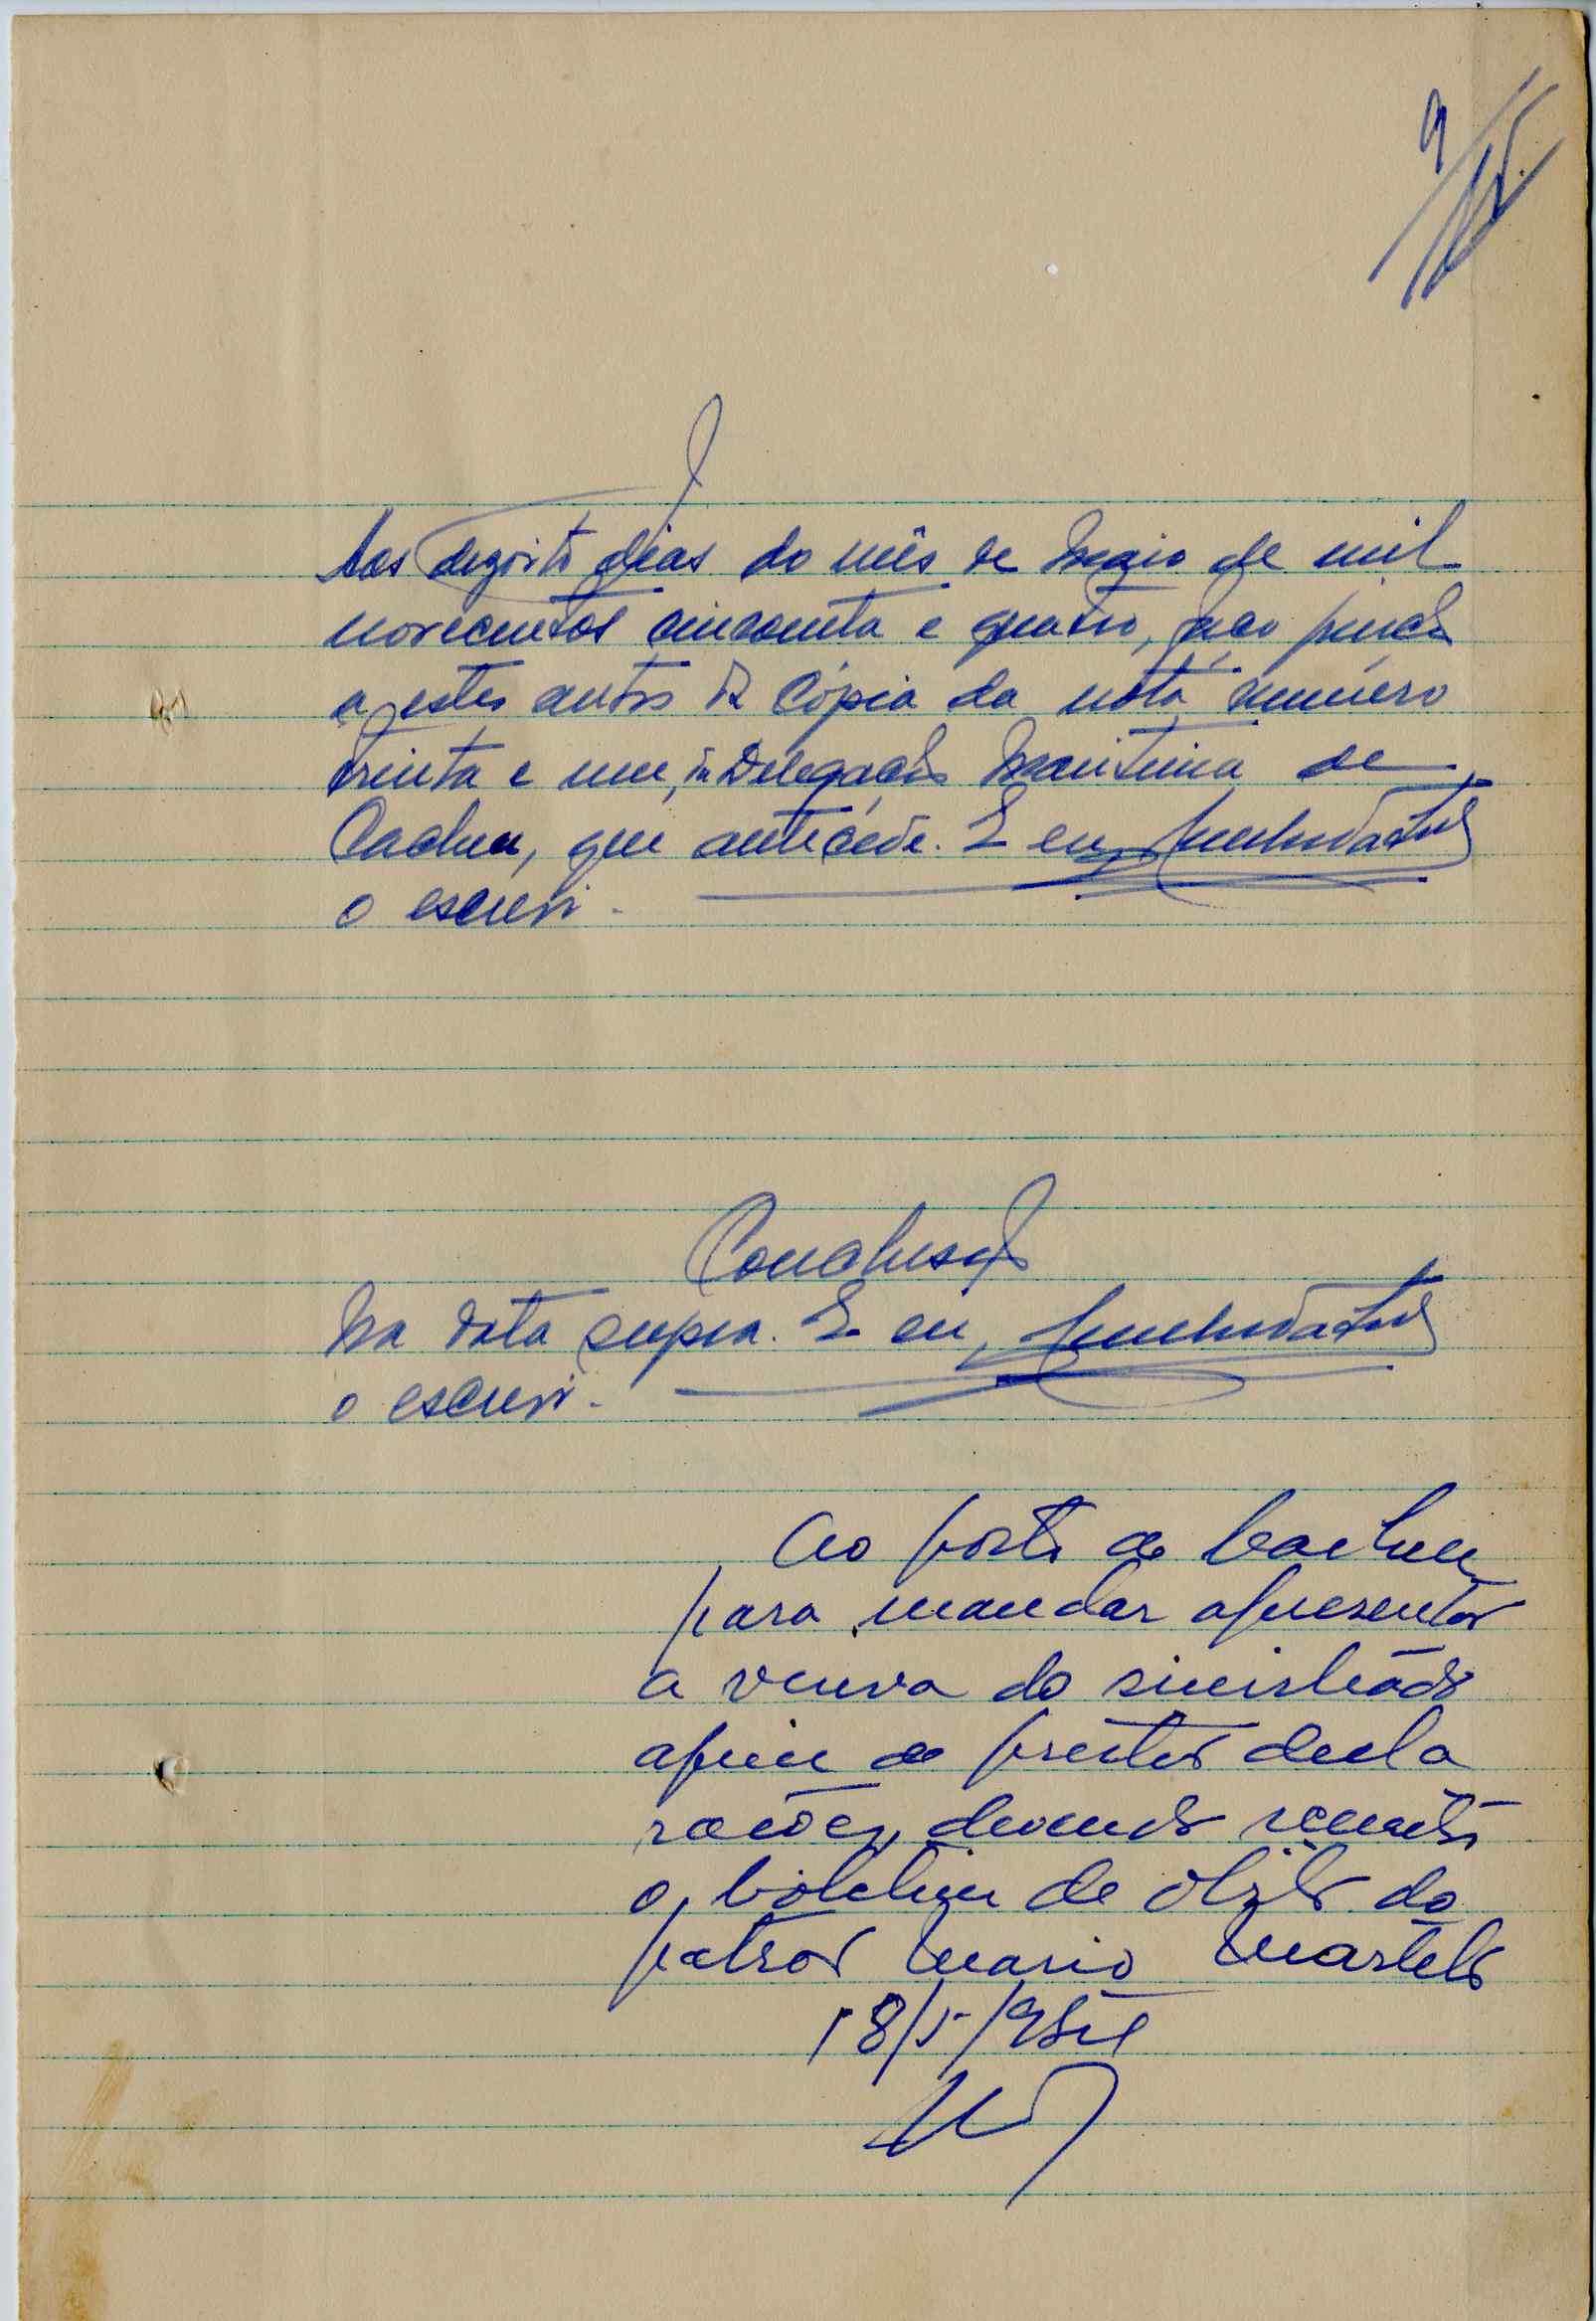 9
Aos dezoito dias do mês de Maio de mil
novecentos cincoenta e quatro, faço junção
a estes autos da Cópia da nota número
trinta e um, da Delegação Maritima de
Cacheu, que antecede. E eu,
o escrevi.
Conclusão
Na data supra. E eu,
o escrevi.
Ao posto de Cacheu
para mandar apresentar
a viuva do sinistrado
afim de prestar decla
rações, devendo remeter
o boletim de obito do
patrão Mario Martels
18/5/954